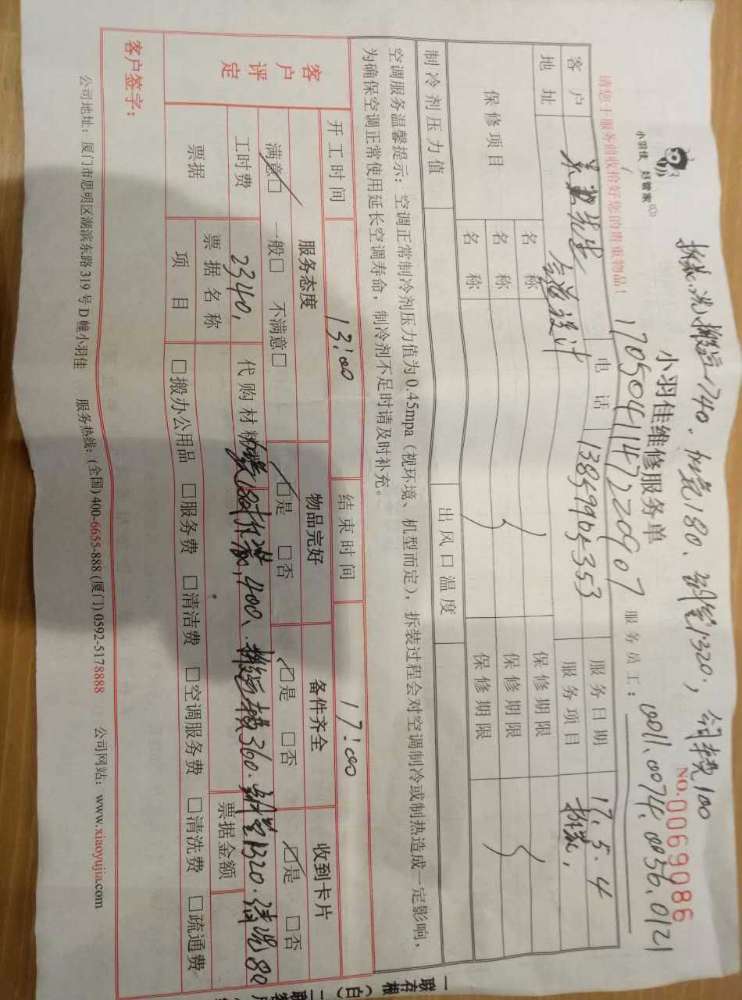 拆装、洗、搬运1740.加氟180、铜管1320.,
No.0069086
小羽佳 好管家
小羽佳维修服务单
请您于服务前收拾好您的贵重物品!
1705041147220907 服务员工:0011.0074.0056.0121
客户 电话 13859905353 服务日期 17.5.4
地址 服务项目 拆装,
保修项目 名称 保修期限
名称 保修期限
名称 保修期限
制冷剂压力值 出风口温度
空调服务温馨提示:空调正常制冷剂压力值为0.45mpa(视环境、机型而定),拆装过程会对空调制冷或制热造成一定影响,
为确保空调正常使用延长空调寿命,制冷剂不足时请及时补充。
开工时间 13:00 结束时间 17:00
客户评定 服务态度 物品完好 备件齐全 收到卡片
满意□ 一般□ 不满意□ □是 □否 □是 □否 □是 □否
工时费 2340, 代购材料 400、 360.铜管1320.清洗80
票据 票据名称 票据金额
项目 □搬办公用品 □服务费 □清洁费 □空调服务费 □清洗费 □疏通费
客户签字:
公司地址:厦门市思明区湖滨东路319号D幢小羽佳 服务热线:(全国)400-6655-888 (厦门)0592-5178888 公司网站:www.xiaoyujia.com